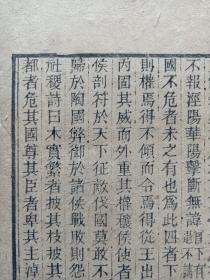 不報涇陽華陽擊斷無諱
國不危者未之有也為此四者下
則權焉得不傾而令焉得從王出
内固其威而外重其權穰侯使者
侯剖符於天下征敵伐國莫敢不
歸於陶國弊御於諸侯戰敗則怨
社稷詩曰木實繁者披其枝披其
都者危其國尊其臣者卑其主淖